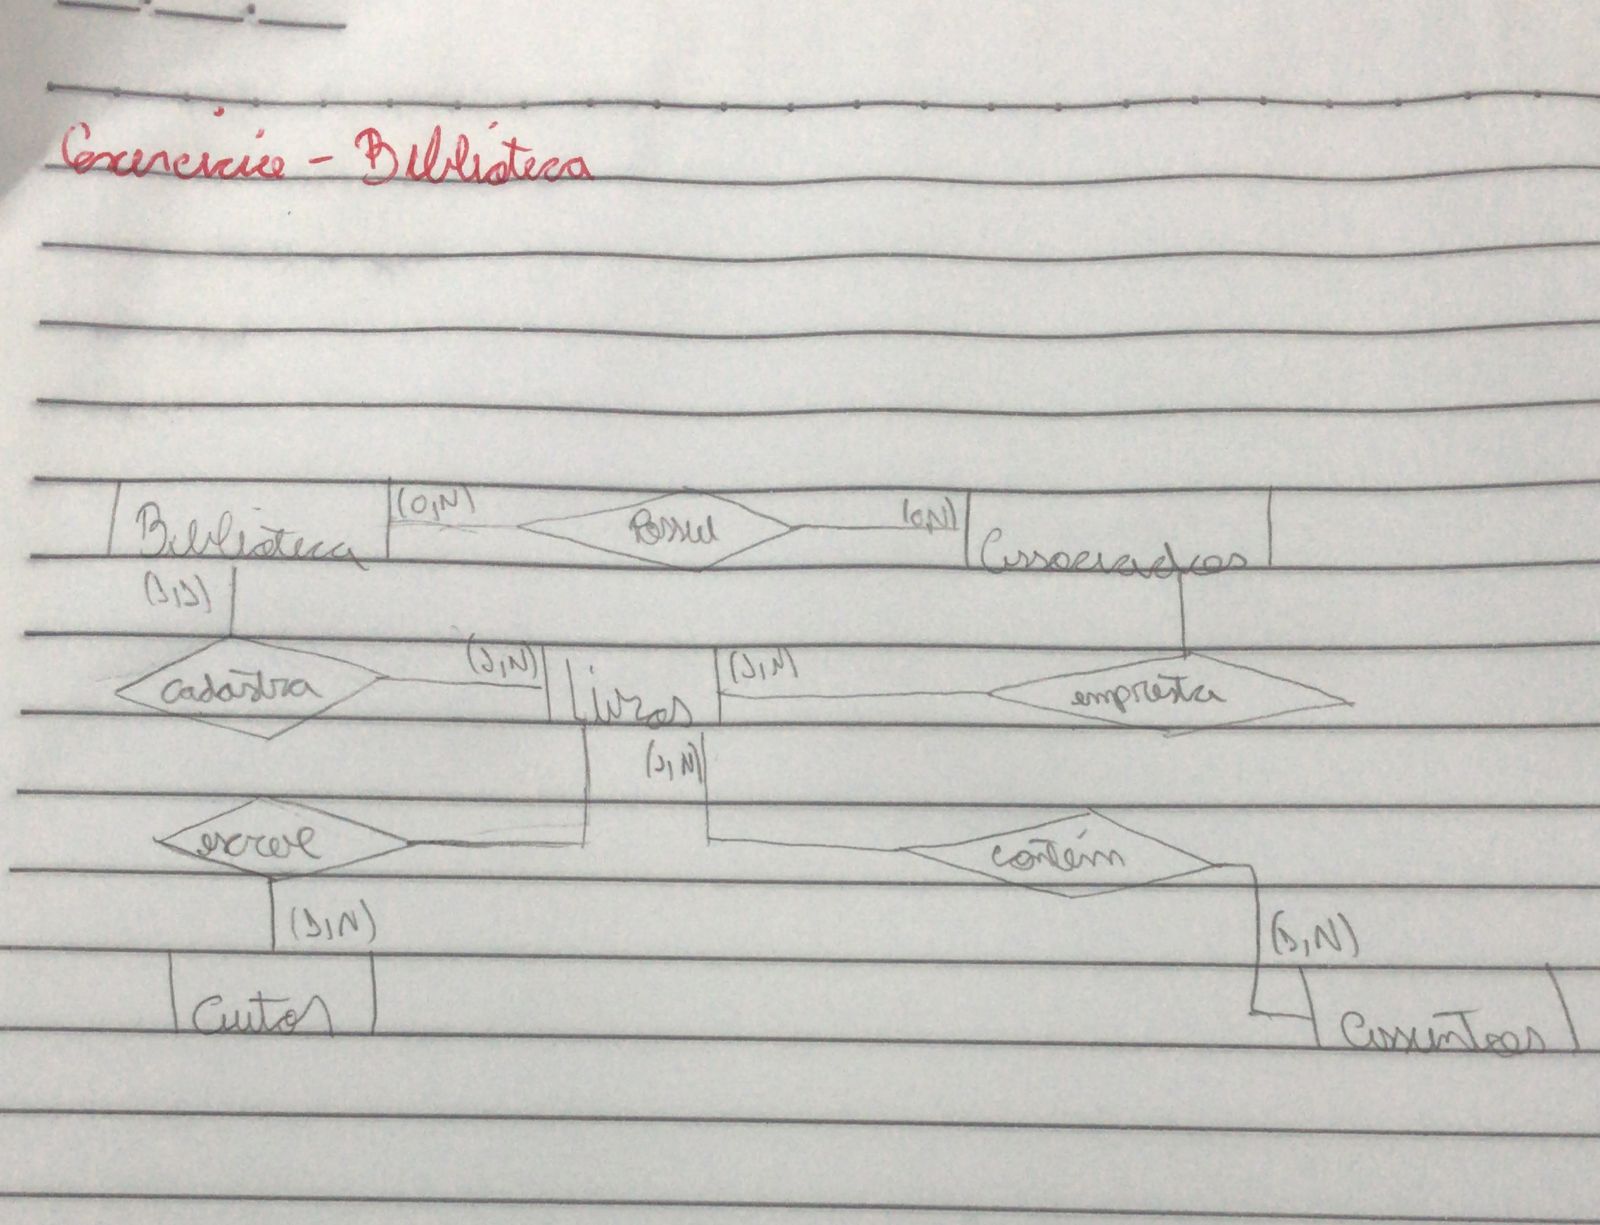 Exercício - Biblioteca
Biblioteca (0,N) Possui (0,N) Associados
(1,1)
cadastra (1,N) Livros (1,N) empresta
(1,N)
escreve contém
(1,N) (1,N)
Autor Assuntos